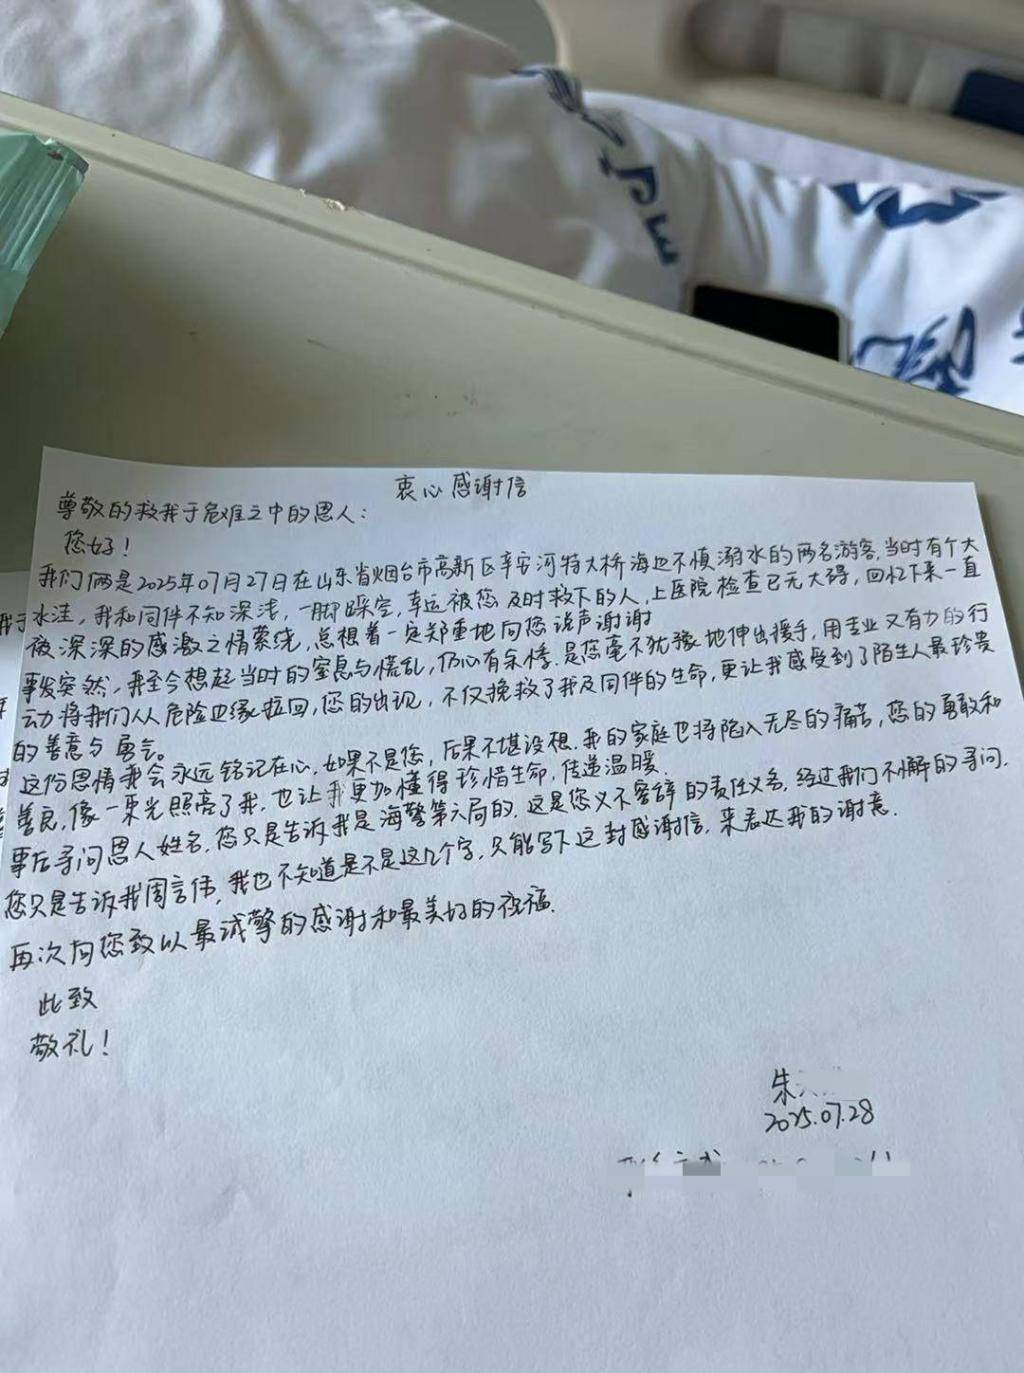 衷心感谢信
尊敬的救我于危难之中的恩人：
您好！
我们俩是2025年07月27日在山东省烟台市高新区辛安河特大桥海边不慎溺水的两名游客，当时有个大
水洼，我和同伴不知深浅，一脚踩空，幸运被您及时救下的人，上医院检查已无大碍，回忆下来一直
被深深的感激之情萦绕，总想着一定郑重地向您说声谢谢
事发突然，我至今想起当时的窒息与慌乱，仍心有余悸.是您毫不犹豫地伸出援手，用专业又有力的行
动将我们从危险边缘拉回，您的出现，不仅挽救了我及同伴的生命，更让我感受到了陌生人最珍贵
的善意与勇气。
这份恩情我会永远铭记在心.如果不是您，后果不堪设想.我的家庭也将陷入无尽的痛苦，您的勇敢和
善良，像一束光照亮了我，也让我更加懂得珍惜生命，传递温暖.
事后寻问恩人姓名.您只是告诉我是海警第六局的.这是您义不容辞的责任义务，经过我们不懈的寻问.
您只是告诉我周言伟，我也不知道是不是这几个字，只能写下这封感谢信，来表达我的谢意.
再次向您致以最诚挚的感谢和最美好的祝福.
此致
敬礼！
朱
2025.07.28